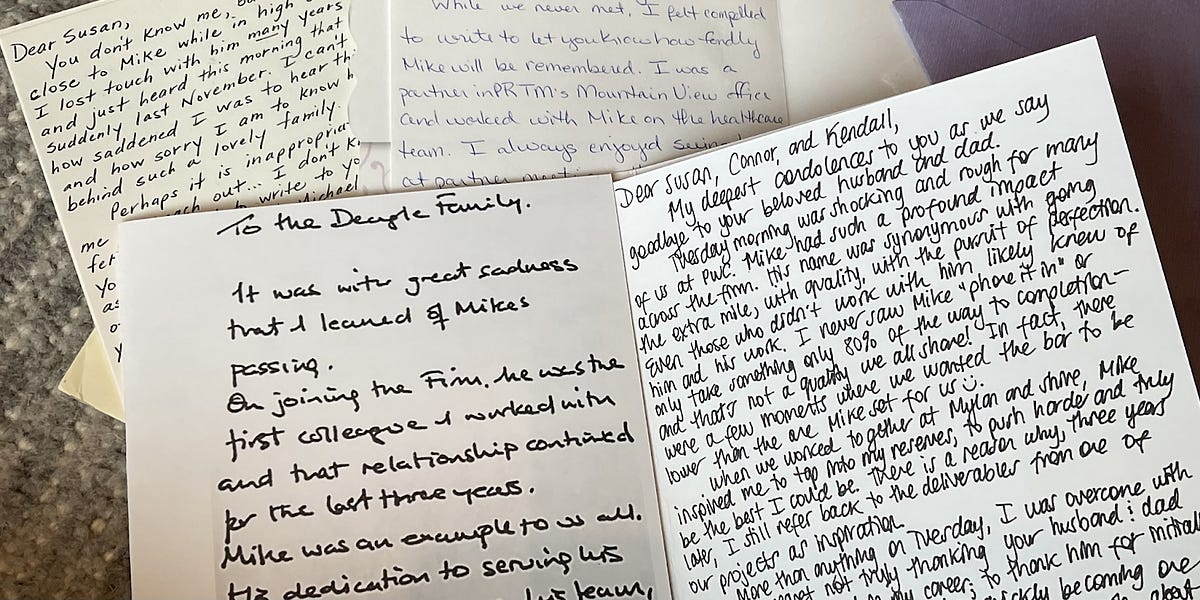 Dear Susan,
You don't know me,
close to Mike while in high
I lost touch with him many years
and just heard this morning that
suddenly last November. I can't
how saddened I was to hear th
and how sorry I am to know h
behind such a lovely family.
Perhaps it is inappropria
ach out... I don't k
write to yo
ichael
me
fel
yo
as
While we never met, I felt compelled
to write to let you know how fondly
Mike will be remembered. I was a
partner in PRTM's Mountain View office
and worked with Mike on the healthcare
team. I always enjoyed seein
at partner meetin
To the Deagle Family.
It was with great sadness
that I learned of Mikes
passing.
On joining the Firm, he was the
first colleague I worked with
and that relationship continued
for the last three years.
Mike was an example to us all.
His dedication to serving his
his team,
Dear Susan, Connor, and Kendall,
My deepest condolences to you as we say
goodbye to your beloved husband and dad.
Tuesday morning was shocking and rough for many
of us at PwC. Mike had such a profound impact
across the firm. His name was synonymous with going
the extra mile, with quality, with the pursuit of perfection.
Even those who didn't work with him likely knew of
him and his work. I never saw Mike "phone it in" or
only take something only 80% of the way to completion-
and that's not a quality we all share! In fact, there
were a few moments where we wanted the bar to be
lower than the one Mike set for us ☺.
When we worked together at Mylan and Shire, Mike
inspired me to tap into my reserves, to push harder and truly
be the best I could be. There is a reason why, three years
later, I still refer back to the deliverables from one of
our projects as inspiration.
More than anything on Tuesday, I was overcome with
not truly thanking your husband & dad
my career; to thank him for initiall
ickly becoming one
about